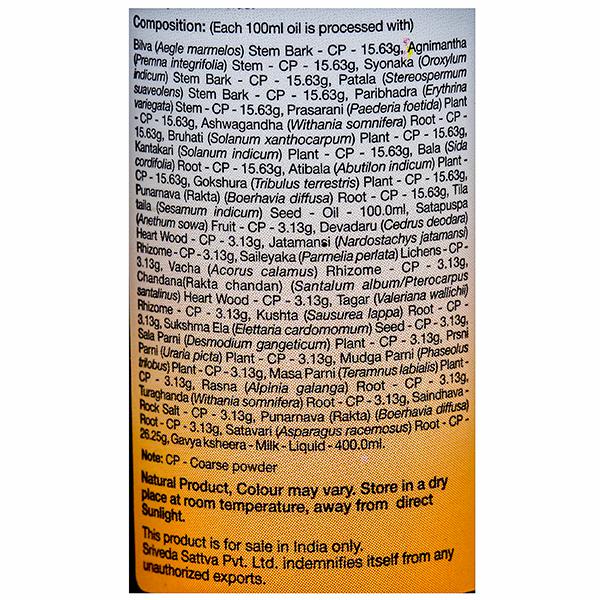 Composition: (Each 100ml oil is processed with)
Bilva (Aegle marmelos) Stem Bark - CP - 15.63g, Agnimantha
(Premna integrifolia) Stem - CP - 15.63g, Syonaka (Oroxylum
indicum) Stem Bark - CP - 15.63g, Patala (Stereospermum
suaveolens) Stem Bark - CP - 15.63g, Paribhadra (Erythrina
variegata) Stem - CP - 15.63g, Prasarani (Paederia foetida) Plant
- CP - 15.63g, Ashwagandha (Withania somnifera) Root - CP -
15.63g, Bruhati (Solanum xanthocarpum) Plant - CP - 15.63g,
Kantakari (Solanum indicum) Plant - CP - 15.63g, Bala (Sida
cordifolia) Root - CP - 15.63g, Atibala (Abutilon indicum) Plant -
CP - 15.63g, Gokshura (Tribulus terrestris) Plant - CP - 15.63g,
Punarnava (Rakta) (Boerhavia diffusa) Root - CP - 15.63g, Tila
taila (Sesamum indicum) Seed - Oil - 100.0ml, Satapuspa
(Anethum sowa) Fruit - CP - 3.13g, Devadaru (Cedrus deodara)
Heart Wood - CP - 3.13g, Jatamansi (Nardostachys jatamansi)
Rhizome - CP - 3.13g, Saileyaka (Parmelia perlata) Lichens - CP -
3.13g, Vacha (Acorus calamus) Rhizome - CP - 3.13g,
Chandana(Rakta chandan) (Santalum album/Pterocarpus
santalinus) Heart Wood - CP - 3.13g, Tagar (Valeriana wallichii)
Rhizome - CP - 3.13g, Kushta (Sausurea lappa) Root - CP -
3.13g, Sukshma Ela (Elettaria cardomomum) Seed - CP - 3.13g,
Sala Parni (Desmodium gangeticum) Plant - CP - 3.13g, Prsni
Parni (Uraria picta) Plant - CP - 3.13g, Mudga Parni (Phaseolus
trilobus) Plant - CP - 3.13g, Masa Parni (Teramnus labialis) Plant -
CP - 3.13g, Rasna (Alpinia galanga) Root - CP - 3.13g,
Turaghanda (Withania somnifera) Root - CP - 3.13g, Saindhava -
Rock Salt - CP - 3.13g, Punarnava (Rakta) (Boerhavia diffusa)
Root - CP - 3.13g, Satavari (Asparagus racemosus) Root - CP -
26.25g, Gavya ksheera - Milk - Liquid - 400.0ml.
Note: CP - Coarse powder
Natural Product, Colour may vary. Store in a dry
place at room temperature, away from direct
Sunlight.
This product is for sale in India only.
Sriveda Sattva Pvt. Ltd. indemnifies itself from any
unauthorized exports.